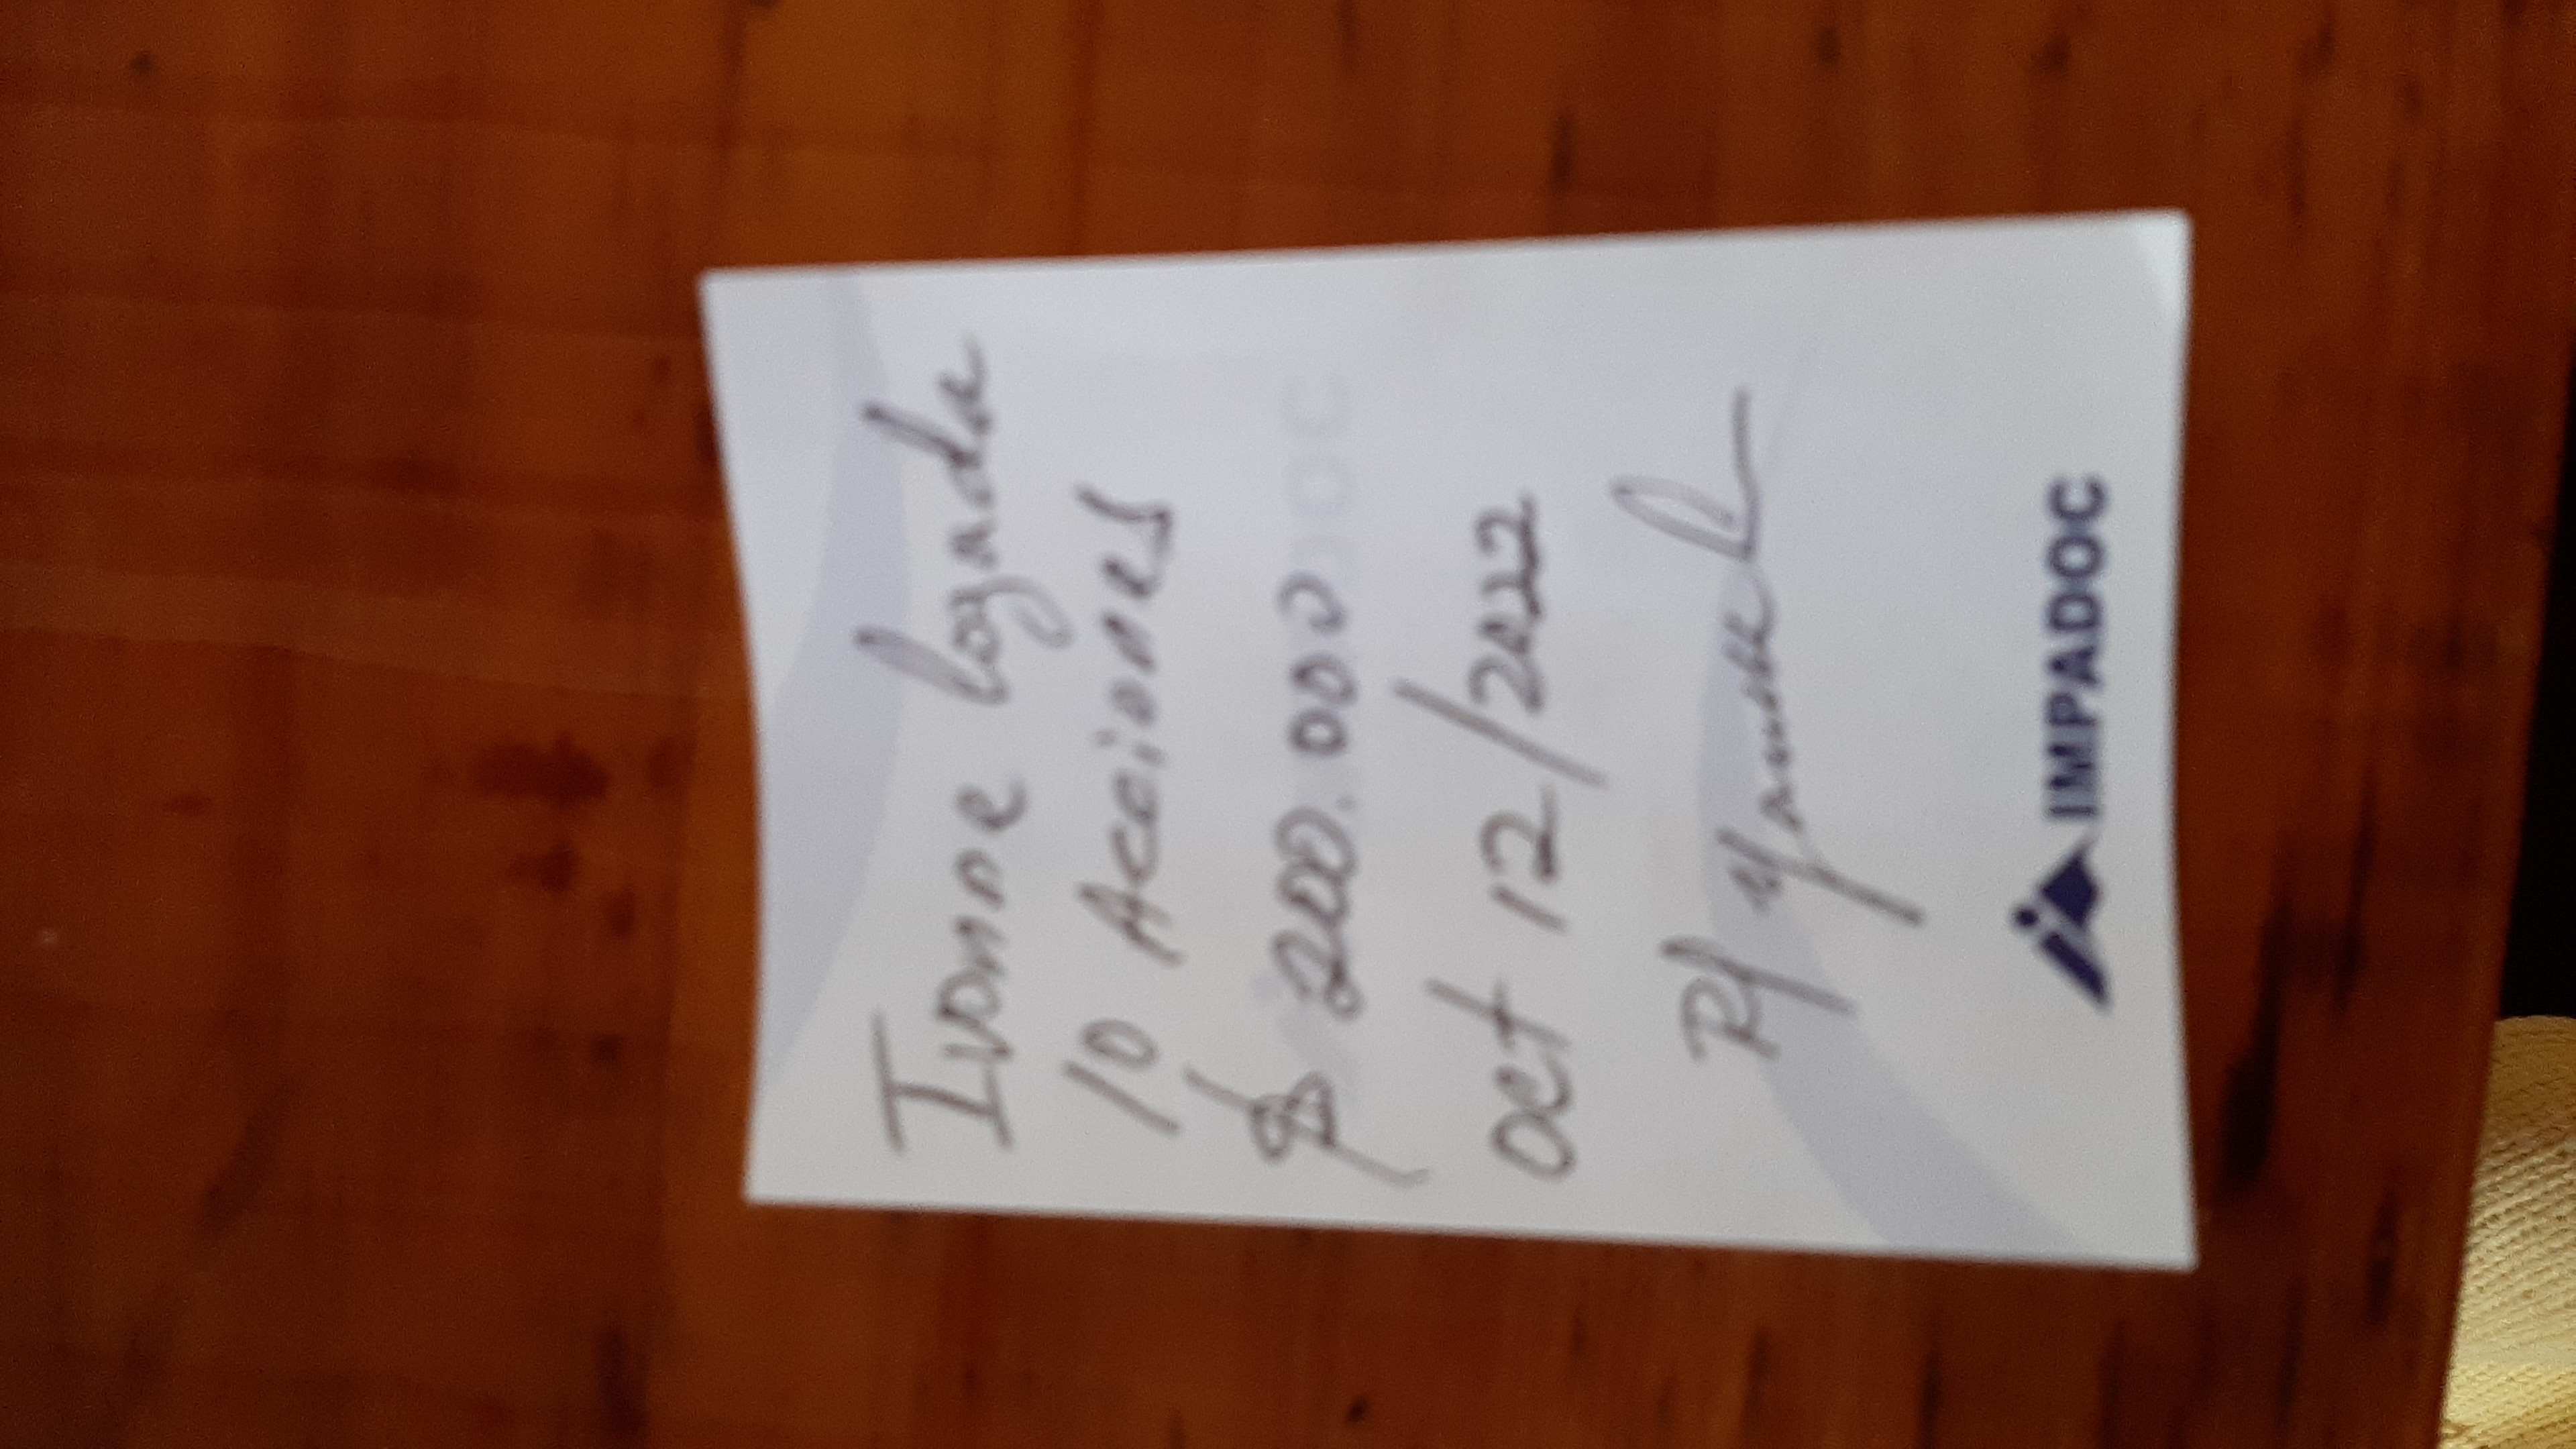 Ivonne lozada
10 Acciones
$ 200.000
oct 12/2022
R/
IMPADOC